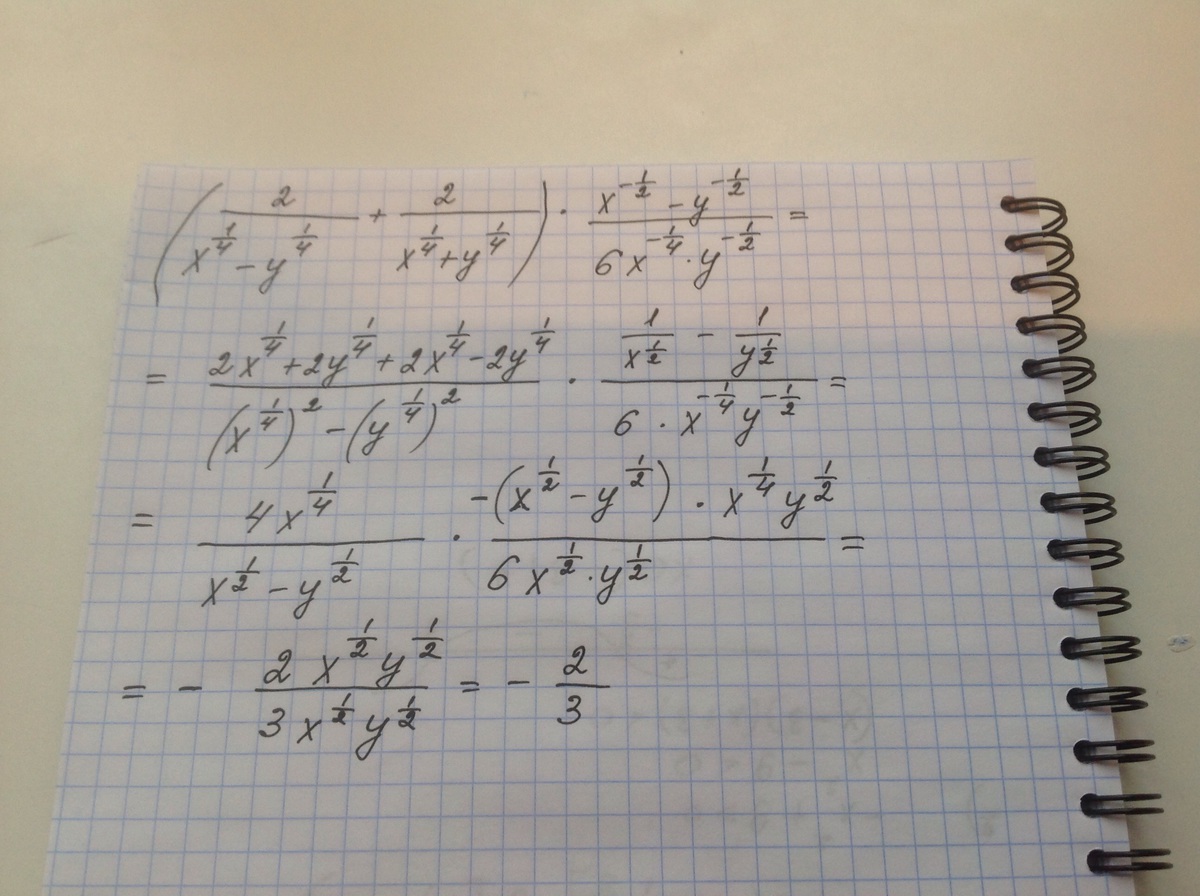 (2/(x^(1/4) - y^(1/4)) + 2/(x^(1/4) + y^(1/4))) · (x^(-1/2) - y^(-1/2))/(6x^(-1/4) · y^(-1/2)) =
= (2x^(1/4) + 2y^(1/4) + 2x^(1/4) - 2y^(1/4))/((x^(1/4))^2 - (y^(1/4))^2) · (1/x^(1/2) - 1/y^(1/2))/(6 · x^(-1/4) y^(-1/2)) =
= 4x^(1/4)/(x^(1/2) - y^(1/2)) · (-(x^(1/2) - y^(1/2)) · x^(1/4) y^(1/2))/(6x^(1/2) · y^(1/2)) =
= - (2 x^(1/2) y^(1/2))/(3 x^(1/2) y^(1/2)) = - 2/3